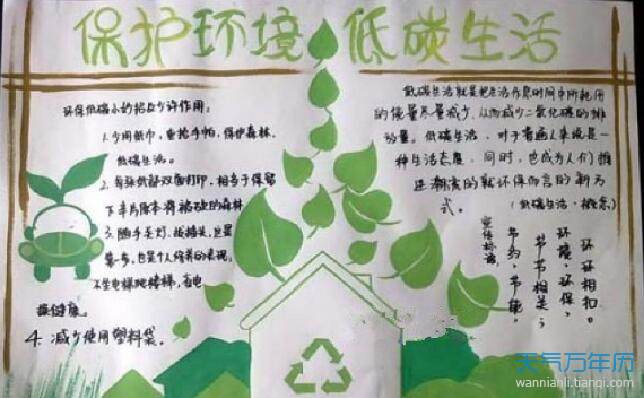 保护环境 低碳生活
环保低碳小妙招
1. 少用纸巾，重拾手帕，保护森林。
低碳生活。
2. 每张纸都双面打印，相当于保留
下半片原本将被砍的森林
3. 随手关灯、拔插头，
第一步，也是个人修养的表现。
不坐电梯爬楼梯，省电
4. 减少使用塑料袋。
低碳生活就是把生活作息时间中所耗用
的能量尽量减少，从而减少二氧化碳的排
放量。低碳生活，对于普通人来说是一
种生活态度，同时，也成为人们推
进潮流的
式。（低碳生活·概念）
宣传标语：
节约，节能，
节节相关；
环境，环保，
环环相扣。
天气万年历
wannianli.tianqi.com